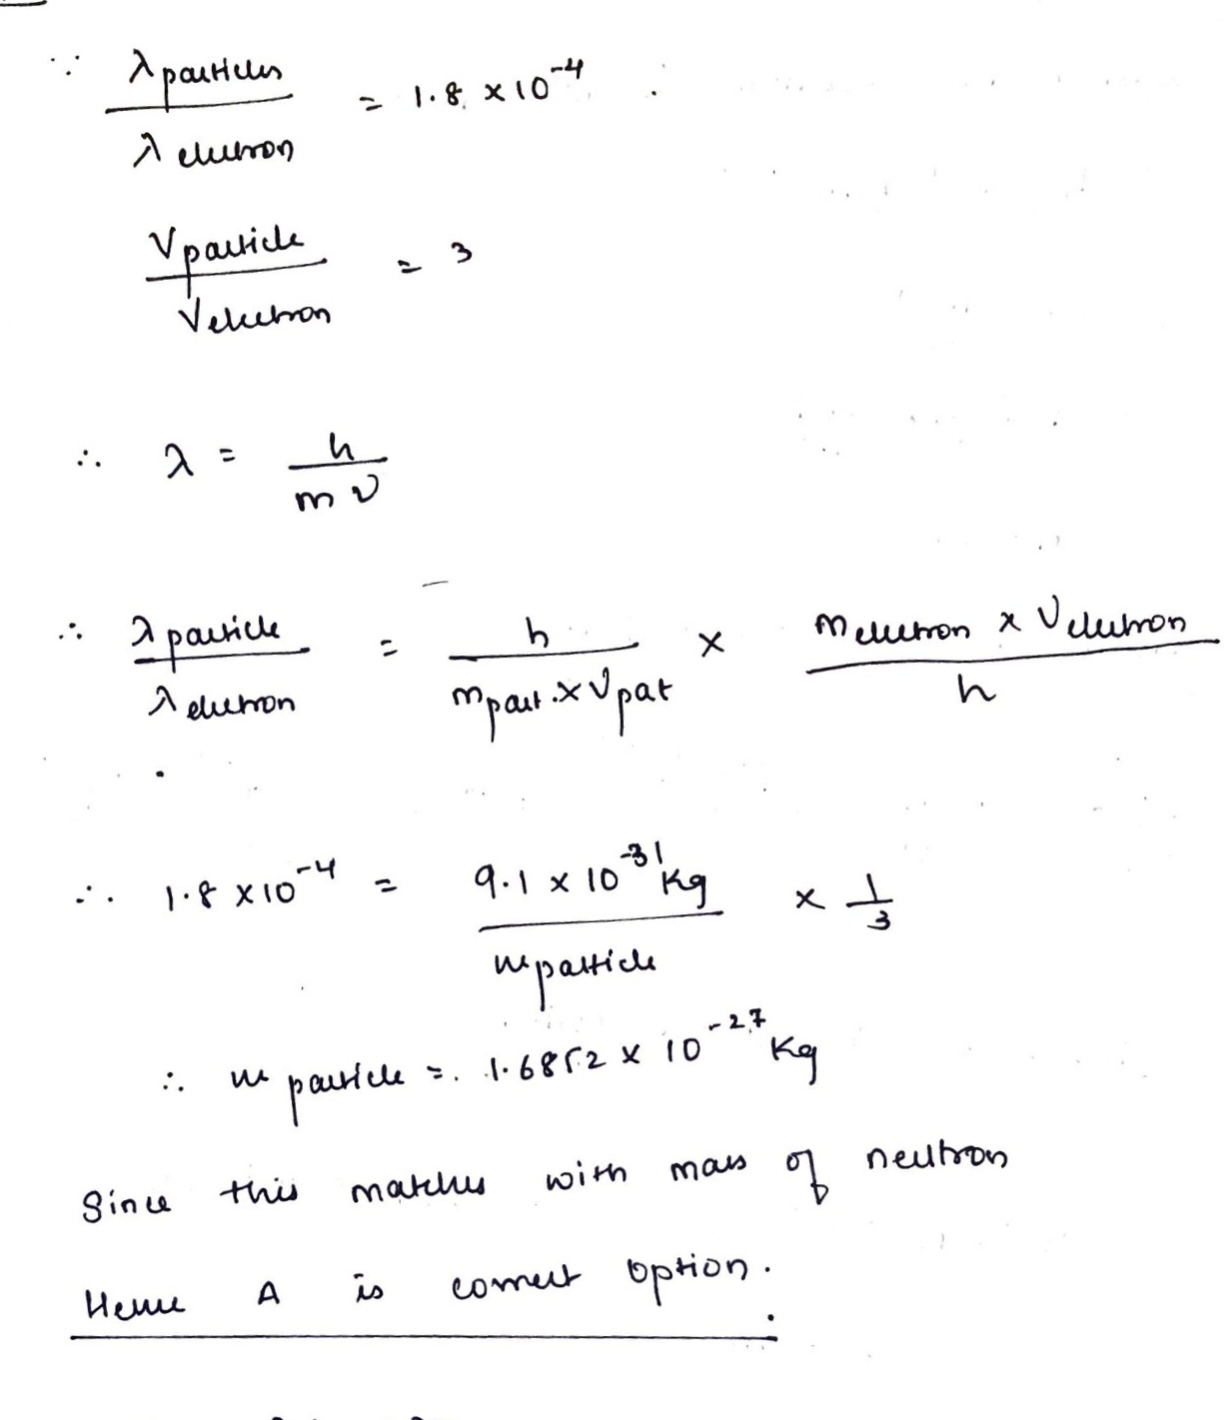 ∵ λ particles / λ electron = 1.8 × 10^-4
V particle / V electron = 3
∴ λ = h / m v
∴ λ particle / λ electron = h / m part. × V pat × m electron × V electron / h
∴ 1.8 × 10^-4 = 9.1 × 10^-31 Kg / m particle × 1/3
∴ m particle = 1.6852 × 10^-27 Kg
Since this matches with mass of neutron
Hence A is correct option.